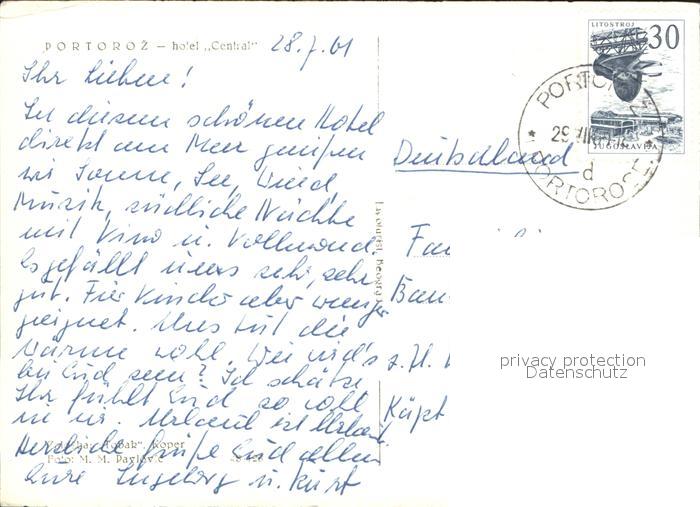 PORTOROŽ – hotel „Central" 28.7.61
Ihr Lieben!
In diesem schönen Hotel
direkt am Meer genießen
wir Sonne, See, Wind,
Musik, südliche Nächte
mit Vino u. Vollmond.
Es gefällt uns sehr, sehr
gut. Für Kinder aber weniger
geeignet. Uns tut die
Wärme wohl. Wie wird's
bei Euch sein? Ich schätze
Ihr fühlt Euch so wohl
wie wir. Urlaub ist Urlaub.
Herzliche Grüße Euch allen
Eure Ingeborg u. Kurt
"Tobak", Koper
Foto: M. M. Pavlovic
LITOSTROJ
30
JUGOSLAVIJA
PORTOROŽ
29.VII
d
PORTOROSE
Deutschland
Fa
Bau
z. H.
Käpt
privacy protection
Datenschutz